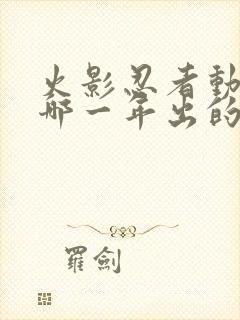 火影忍者動
哪一年出的
羅劍